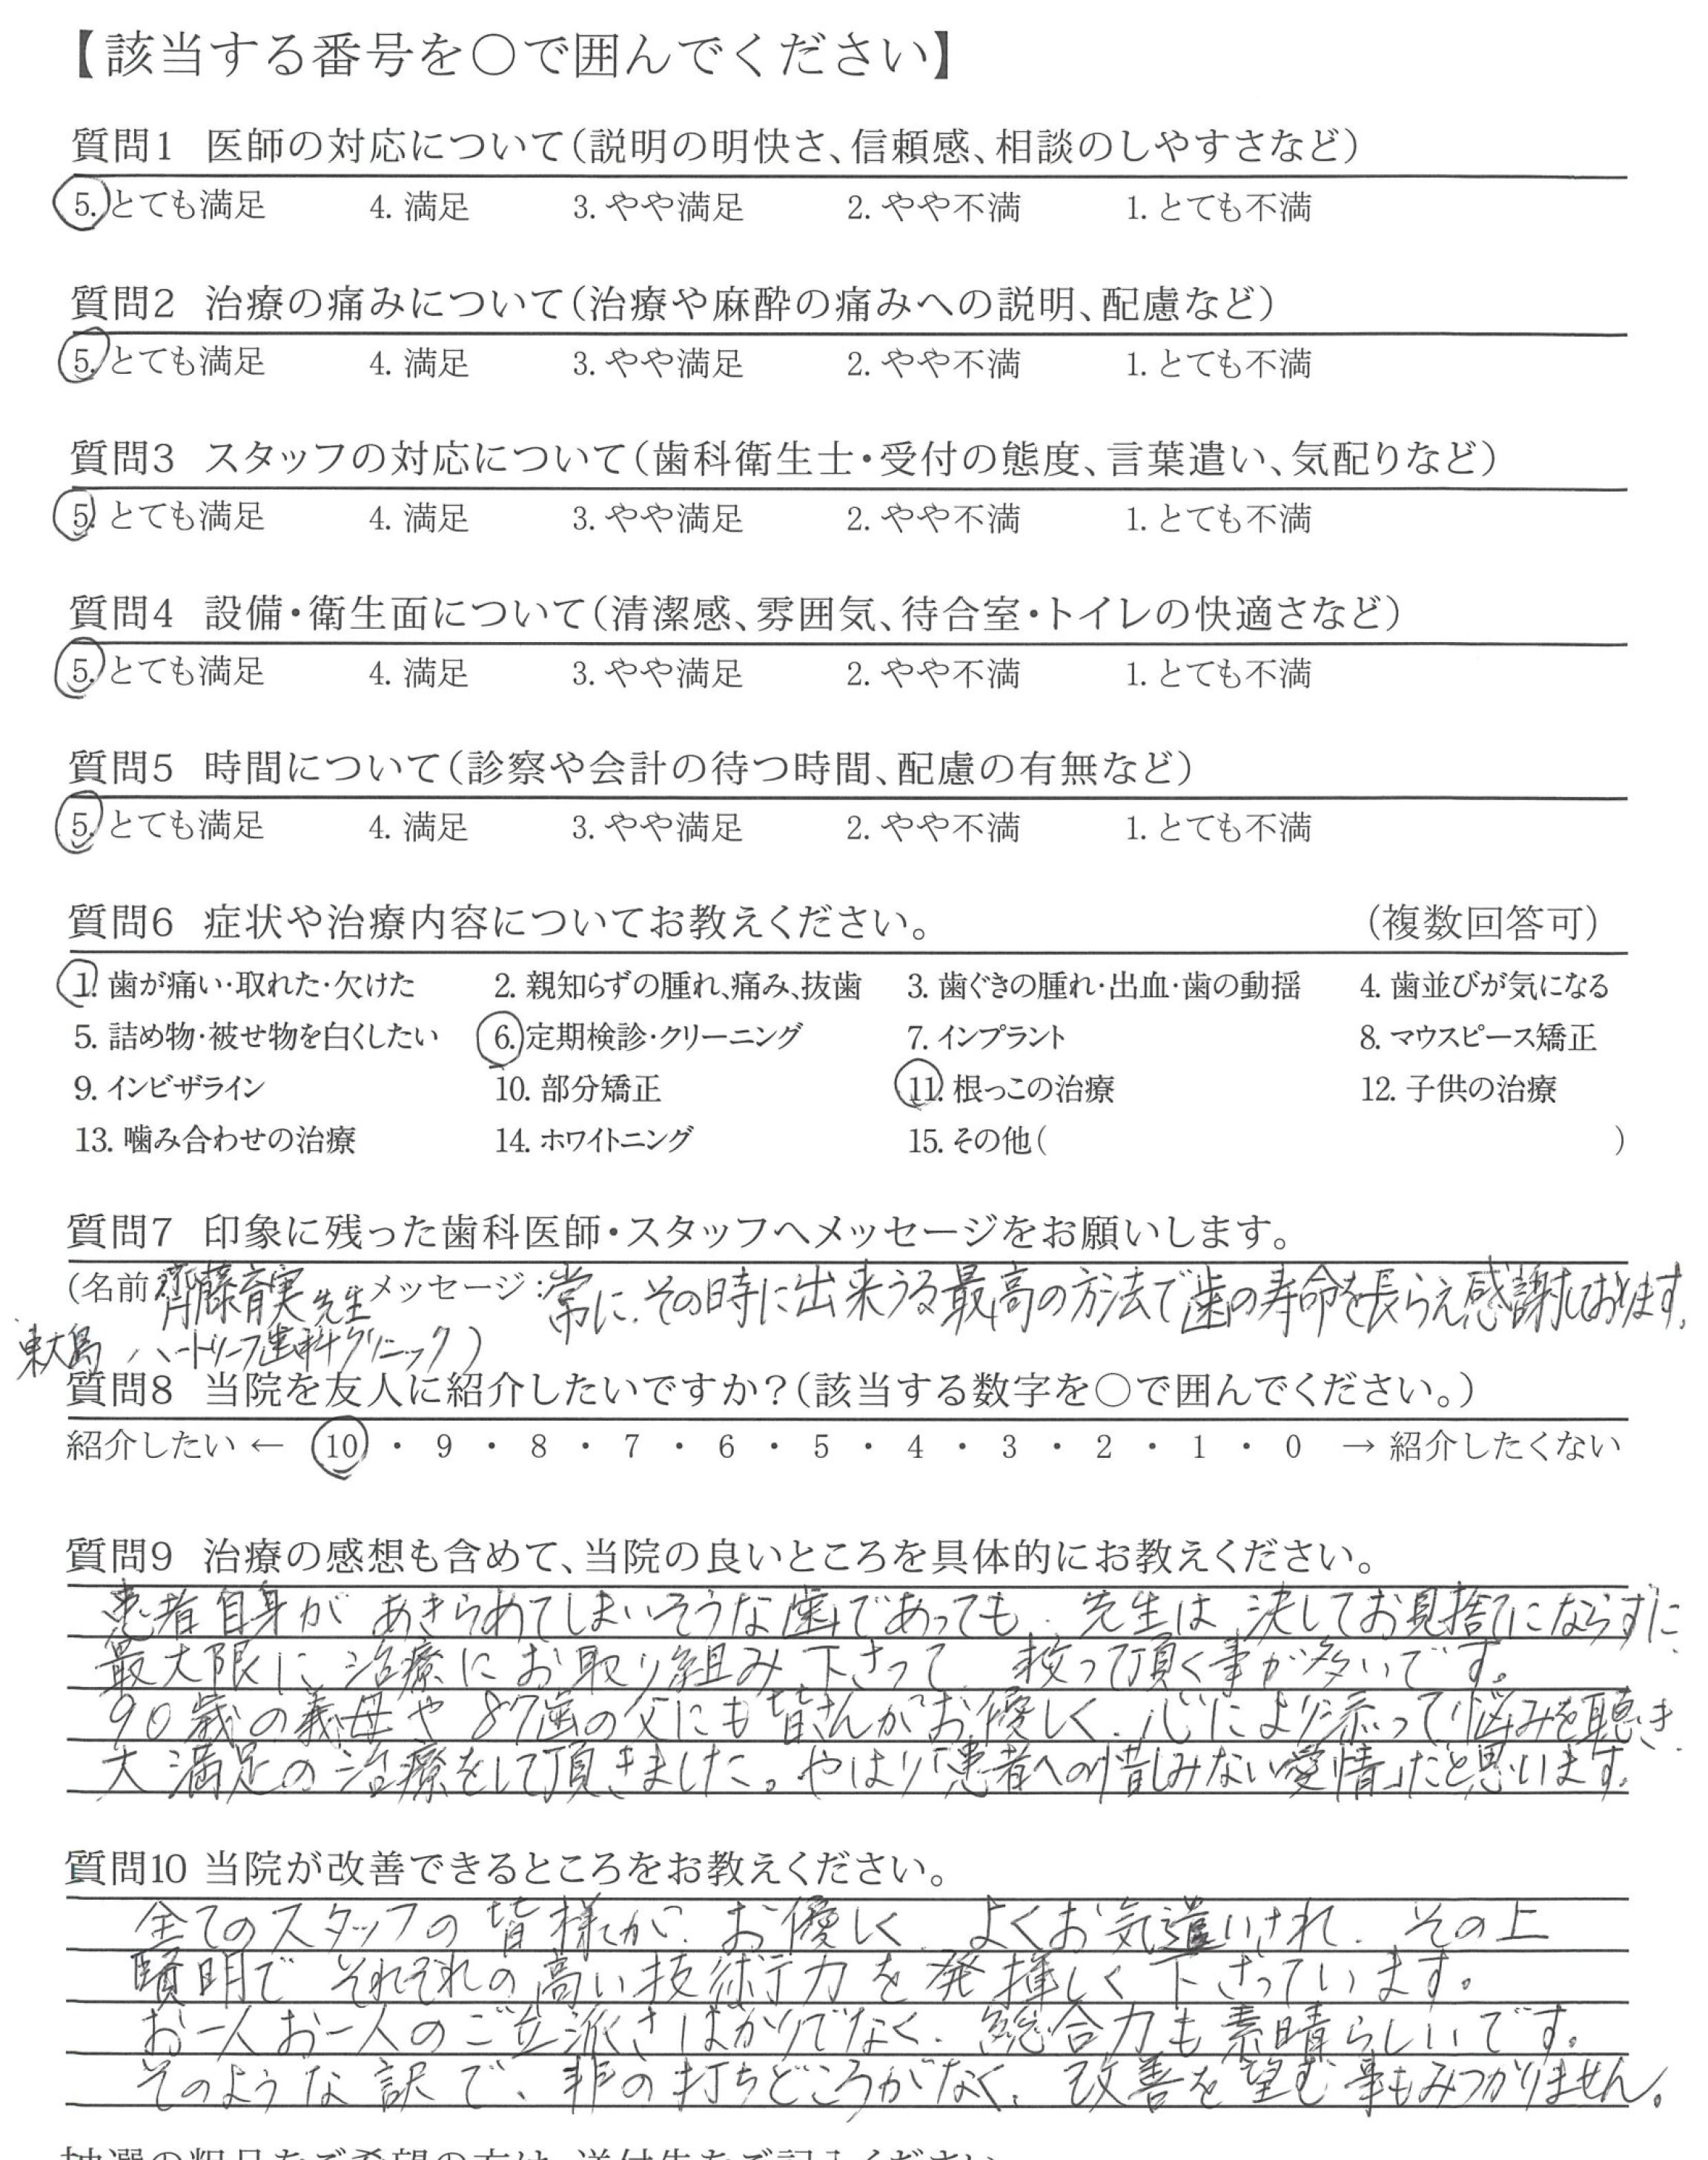 【該当する番号を○で囲んでください】
質問1 医師の対応について（説明の明快さ、信頼感、相談のしやすさなど）
5. とても満足 4. 満足 3. やや満足 2. やや不満 1. とても不満
質問2 治療の痛みについて（治療や麻酔の痛みへの説明、配慮など）
5. とても満足 4. 満足 3. やや満足 2. やや不満 1. とても不満
質問3 スタッフの対応について（歯科衛生士・受付の態度、言葉遣い、気配りなど）
5. とても満足 4. 満足 3. やや満足 2. やや不満 1. とても不満
質問4 設備・衛生面について（清潔感、雰囲気、待合室・トイレの快適さなど）
5. とても満足 4. 満足 3. やや満足 2. やや不満 1. とても不満
質問5 時間について（診察や会計の待つ時間、配慮の有無など）
5. とても満足 4. 満足 3. やや満足 2. やや不満 1. とても不満
質問6 症状や治療内容についてお教えください。 （複数回答可）
1. 歯が痛い・取れた・欠けた 2. 親知らずの腫れ、痛み、抜歯 3. 歯ぐきの腫れ・出血・歯の動揺 4. 歯並びが気になる
5. 詰め物・被せ物を白くしたい 6. 定期検診・クリーニング 7. インプラント 8. マウスピース矯正
9. インビザライン 10. 部分矯正 11. 根っこの治療 12. 子供の治療
13. 噛み合わせの治療 14. ホワイトニング 15. その他（ ）
質問7 印象に残った歯科医師・スタッフへメッセージをお願いします。
（名前 齊藤育実先生 メッセージ：常に、その時に出来うる最高の方法で歯の寿命を長らえ感謝しております。
東大島 ハートリーフ歯科クリニック）
質問8 当院を友人に紹介したいですか？（該当する数字を○で囲んでください。）
紹介したい ← 10 ・ 9 ・ 8 ・ 7 ・ 6 ・ 5 ・ 4 ・ 3 ・ 2 ・ 1 ・ 0 → 紹介したくない
質問9 治療の感想も含めて、当院の良いところを具体的にお教えください。
患者自身が あきらめてしまいそうな歯であっても、先生は 決してお見捨てにならずに、
最大限に 治療に お取り組み下さって 救って頂く事が多いです。
90歳の義母や 87歳の父にも皆さんがお優しく、心により添って悩みを聴き、
大満足の治療をして頂きました。やはり「患者への惜しみない愛情」だと思います。
質問10 当院が改善できるところをお教えください。
全てのスタッフの 皆様が、お優しく、よくお気遣いされ、その上
賢明で それぞれの高い技術力を発揮しく下さっています。
お一人お一人のご立派さばかりでなく、総合力も素晴らしいです。
そのような訳で、非の打ちどころがなく、改善を望む事もみつかりません。